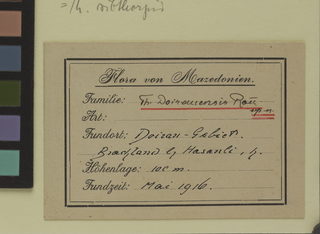 =Th. sibthorpii
Flora von Mazedonien.
Familie: Th. Doiranensis Ron.
Art: sp. n.
Fundort: Doiran-Gebiet.
Brachland b. Hasanli, h.
Höhenlage: 100 m.
Fundzeit: Mai 1916.